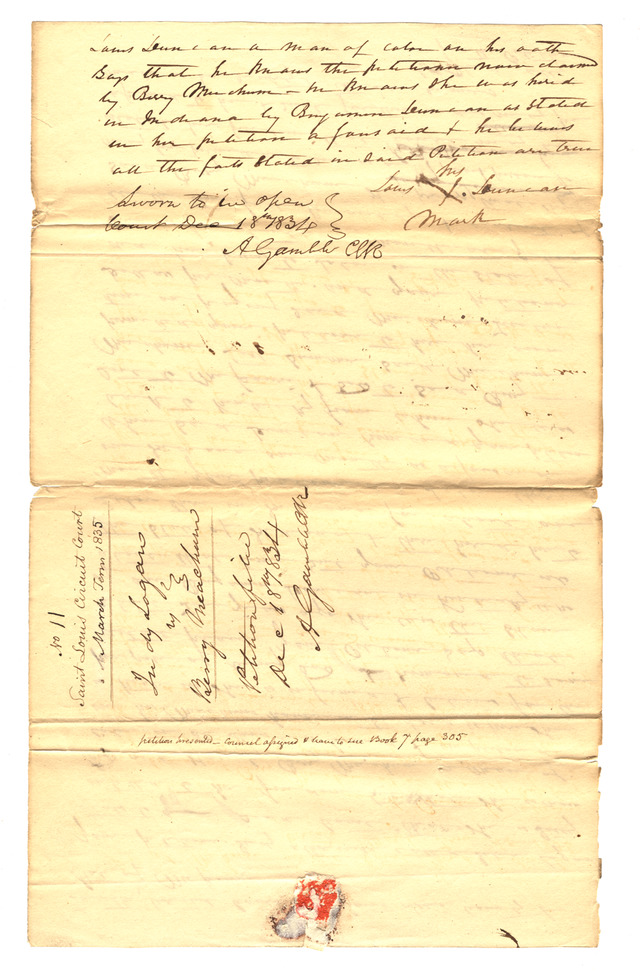 Louis Duncan a man of color on his oath
Says that he Knows the petitioner now claimed
by Berry Meachum – he Knows She was hired
in Indiana by Benjamin Duncan as Stated
in her petition aforesaid & he believes
all the facts Stated in said Petition are true
his
Louis X Duncan
Mark
Sworn to in open
Court Dec 18th 1834
A Gamble Clk
No 11
Saint Louis Circuit Court
March Term 1835
Judy Logan
vs
Berry Meachum
Petition file
Dec 18th 1834
A Gamble Clk
petition presented – Counsel assigned & leave to sue Book 7 page 305